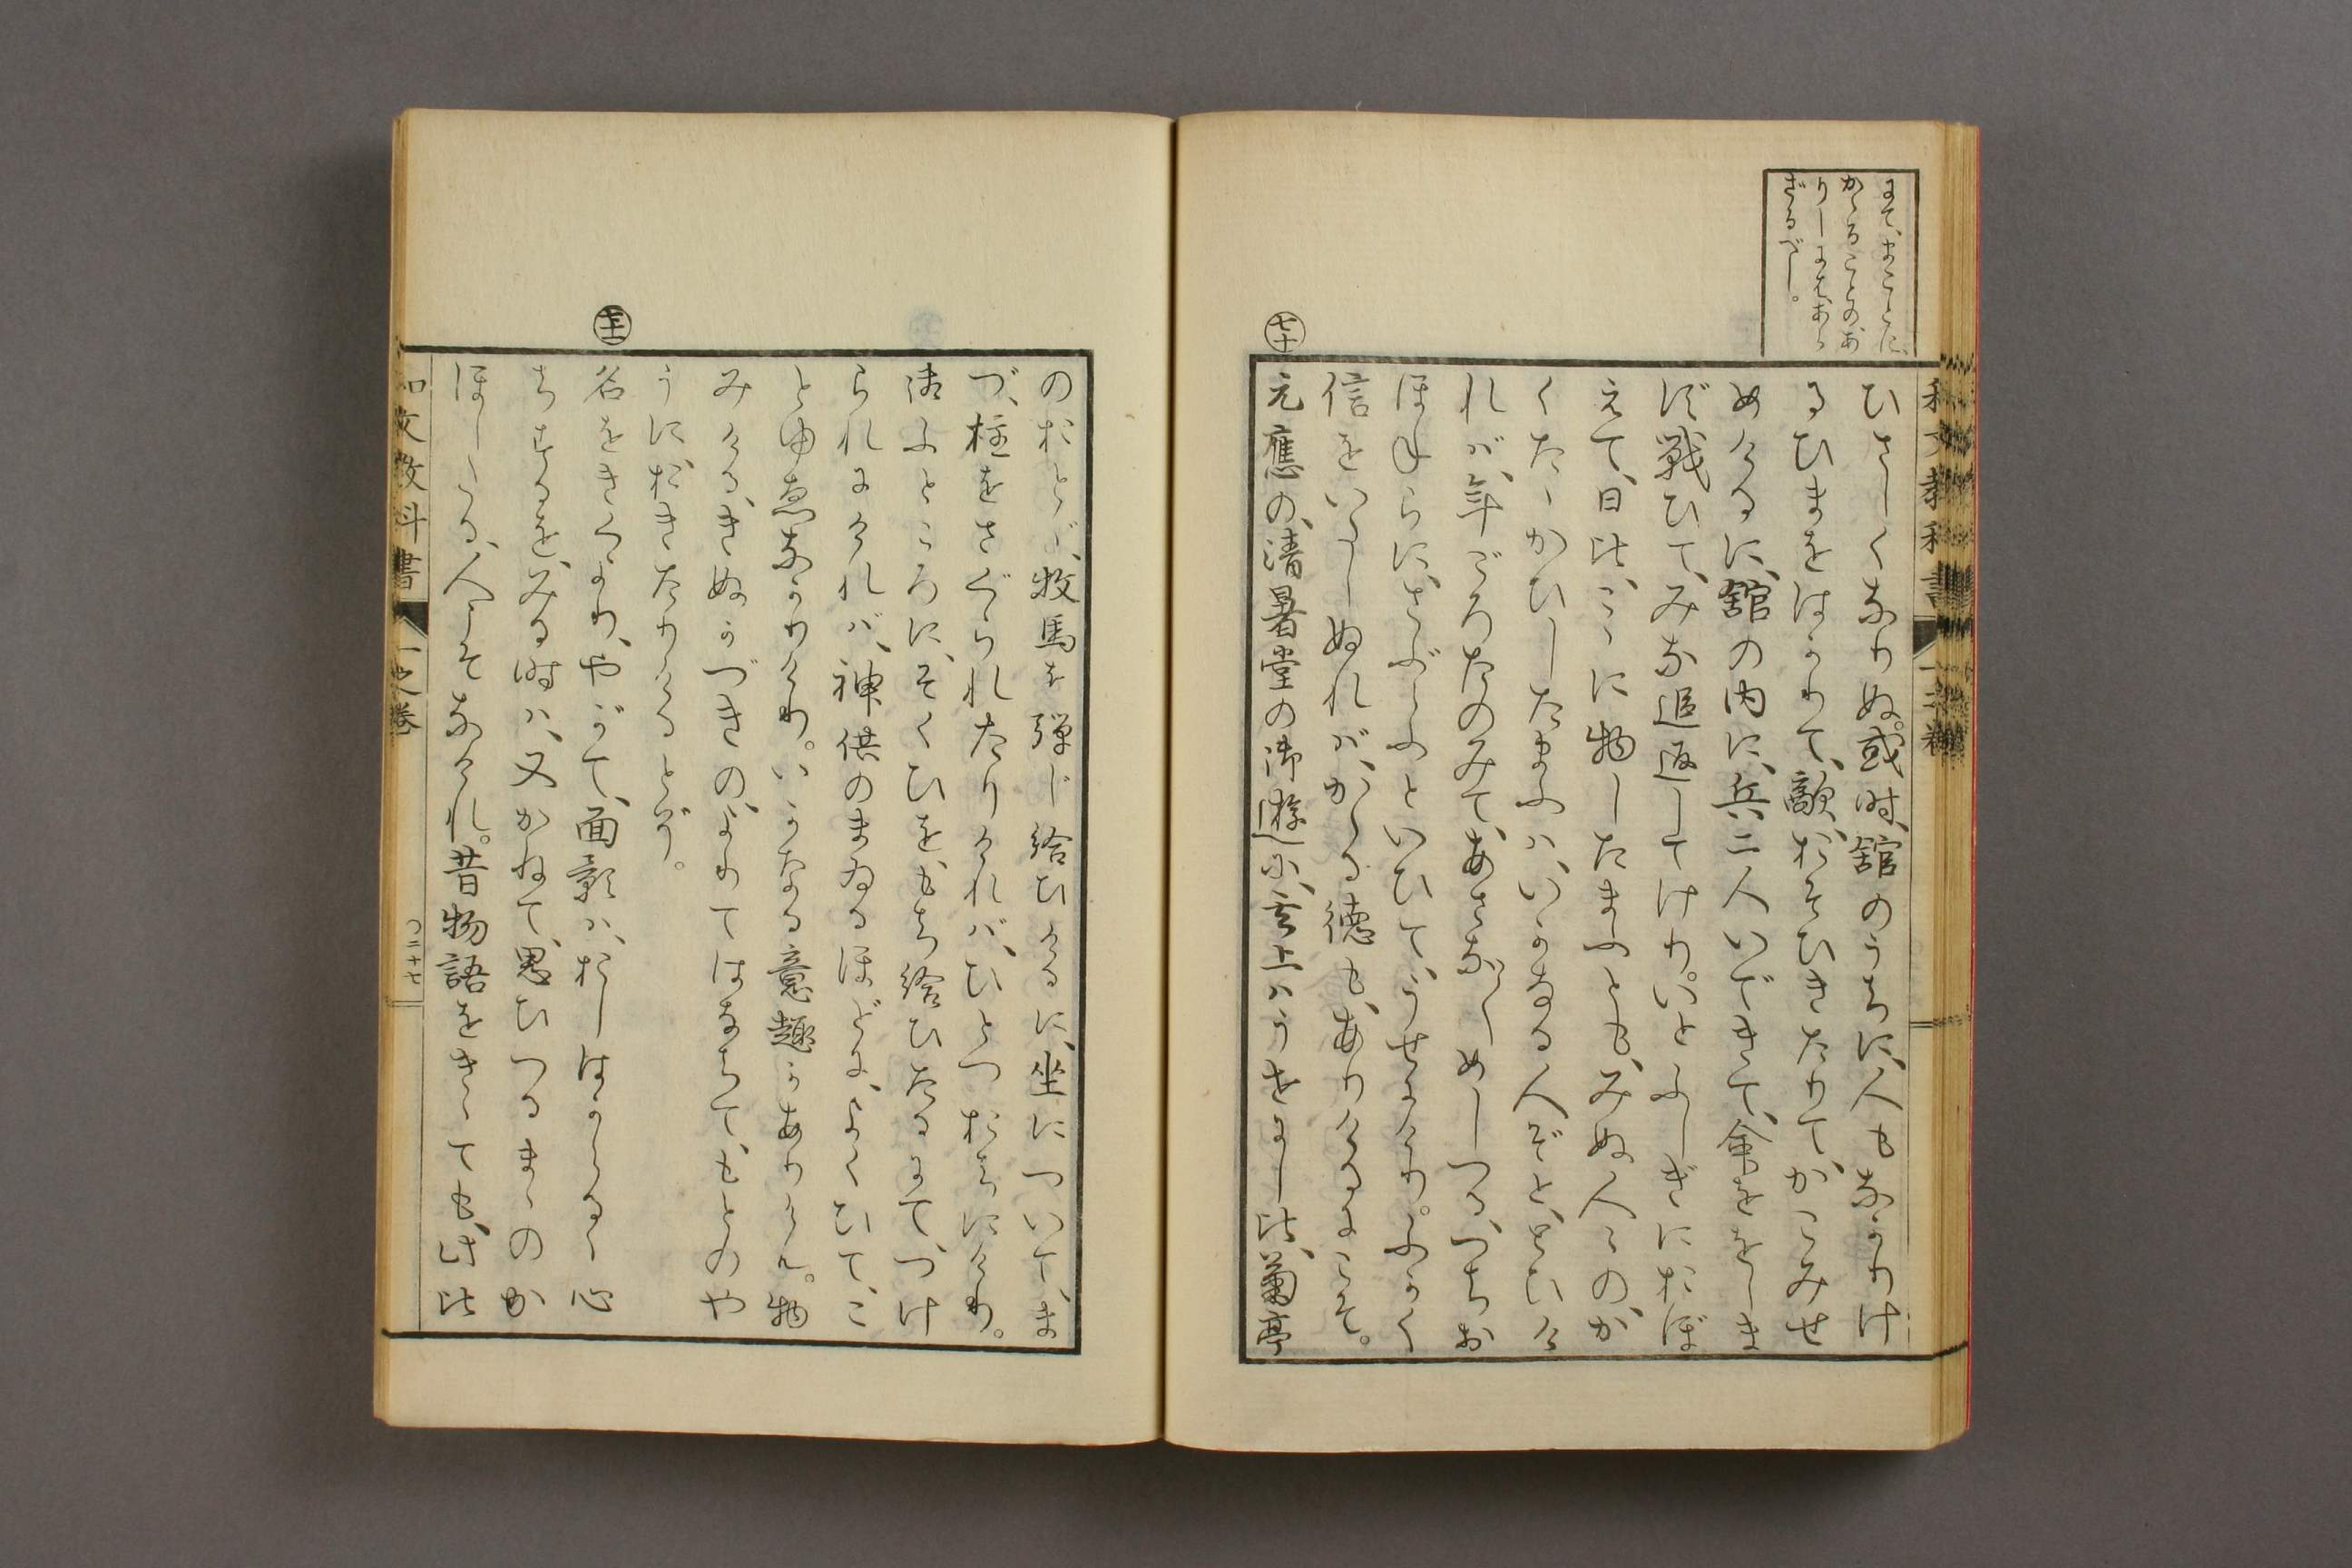 まて、まことに、
かゝることのあ
りしにはあら
ざるべし。
和文教科書 一之巻
ひさしくなりぬ。或時、舘のうちに、人もなかりけ
るひまをはかりて、敵おそひきたりて、かこみせ
めけるに、舘の内に、兵二人いできて、命ををしま
ず戦ひて、みな追返してけり。いとふしぎにおぼ
えて、日比こゝに物したまふとも、みぬ人々の、か
くたゝかひしたまふハ、いかなる人ぞと、とひけ
れバ、年ごろたのみて、あさなあさなめしつる、つちお
ほねらに、さぶらふといひて、うせにけり。ふかく
信をいたしぬれバ、かゝる徳も、ありけるにこそ。
七十
元應の、清暑堂の御遊に、玄上ハうせにし比、菊亭
のおとゞ、牧馬を弾じ給ひけるに、坐について、ま
づ、柱をさぐられたりけれバ、ひとつおちにけり。
御ふところに、そくひを、もち給ひたるにて、つけ
られにけれバ、神供のまゐるほどに、よくひて、こ
とゆゑなかりけり。いかなる意趣かありけん。物
みける、きぬかづきの、よりてはなちて、もとのや
うに、おきたりけるとぞ。
七十一
名をきくより、やがて、面影ハ、おしはからるゝ心
ちするを、みる時ハ、又かねて、思ひつるまゝのか
ほしたる、人こそなけれ。昔物語をきゝても、此比
和文教科書 一之巻 〇二十七